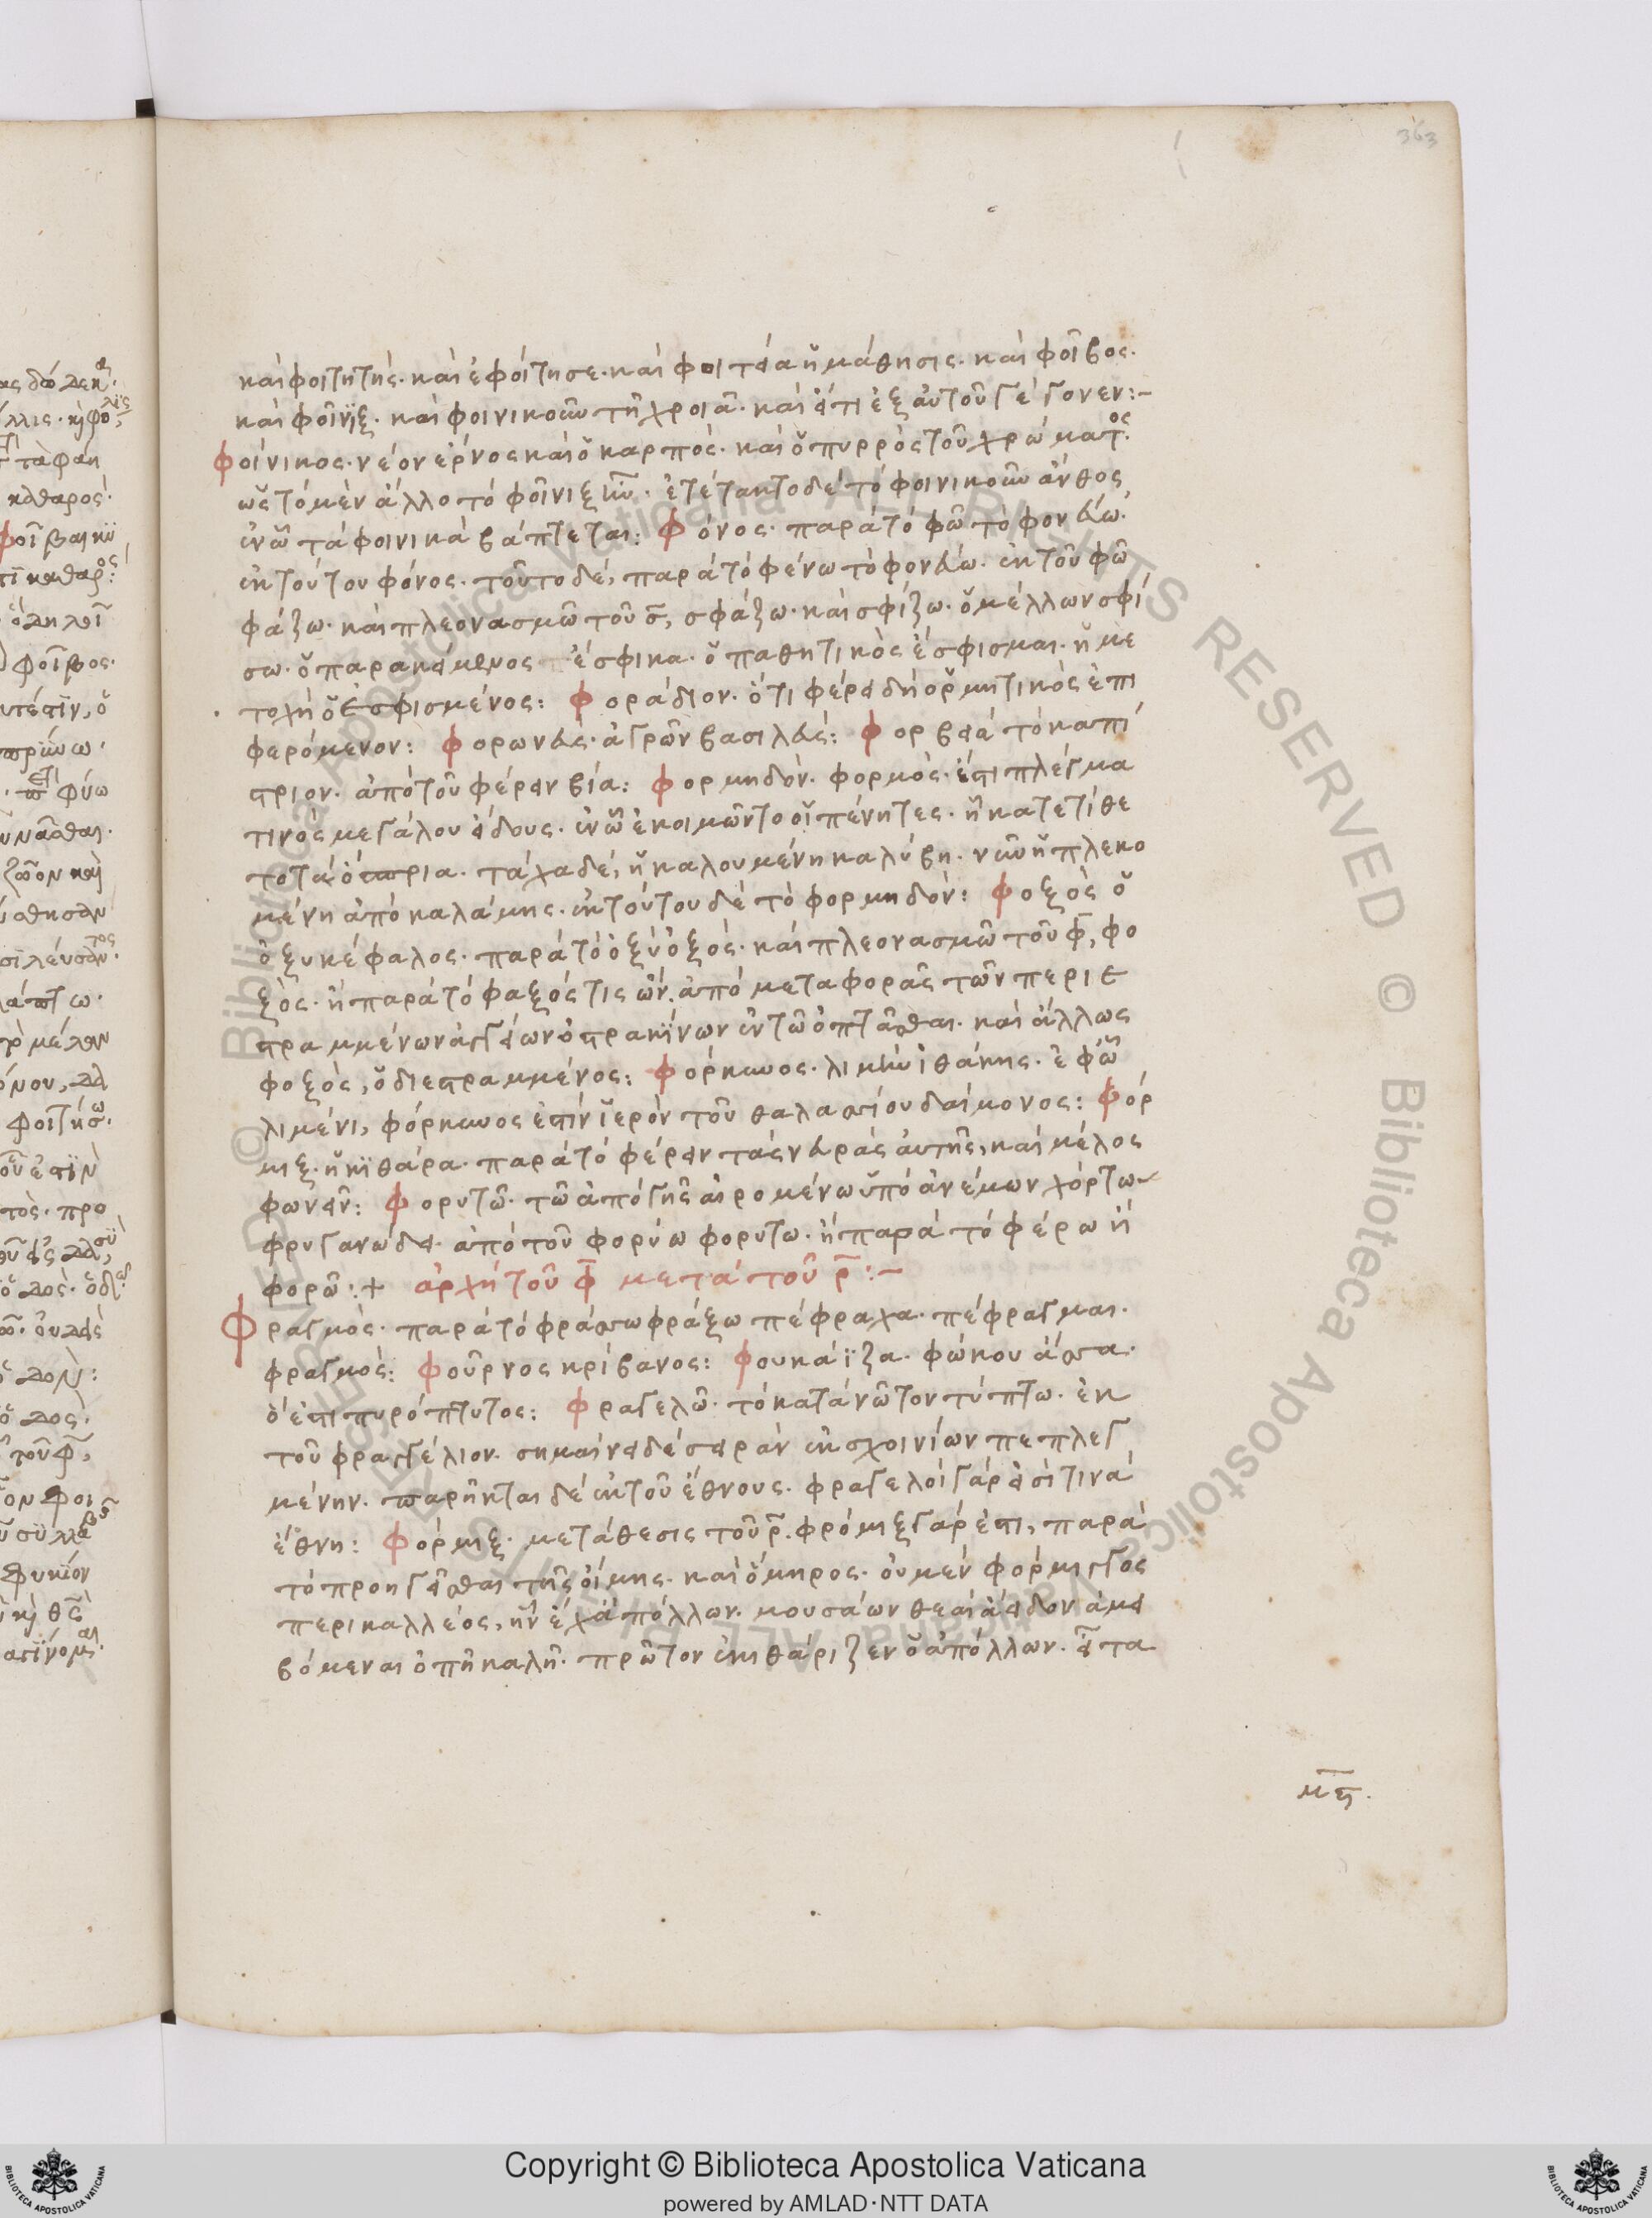 363
καὶ φοιτητής. καὶ ἐφοίτησε. καὶ φοιτεία ἡ μάθησις. καὶ φοῖβος.
καὶ φοῖνιξ. καὶ φοινικοῦν τῆ χροιᾶ. καὶ ὅτι ἐξ αὐτοῦ γέγονεν:-
φοίνικος. νέον ἔρνος καὶ ὁ καρπὸς. καὶ ὁ πυρρὸς τοῦ χρώματος.
ὡς τὸ μὲν ἄλλο τὸ φοῖνιξ ἦν. ἐτέτακτο δὲ τὸ φοινικοῦν ἄνθος
ἐν ὧ τὰ φοινικὰ βάπτεται: φόνος. παρὰ τὸ φῶ τὸ φονεύω.
ἐκ τούτου φόνος. τοῦτο δὲ, παρὰ τὸ φένω τὸ φονεύω. ἐκ τοῦ φῶ
φάζω. καὶ πλεονασμῶ τοῦ σ, σφάζω. καὶ σφίζω. ὁ μέλλων σφί
σω. ὁ παρακείμενος ἔσφικα. ὁ παθητικὸς ἔσφισμαι. ἡ με
τοχὴ ὁ ἐσφισμένος: φοράδιον. ὅτι φέρει δὴ ὁρμητικὸς ἐπι
φερόμενον: φορωνεύς. ἀγρῶν βασιλεύς: φορβειά τὸ καπί
στριον. ἀπὸ τοῦ φέρειν βία: φορμηδόν. φορμὸς. ἐστι πλέγμα
τινὸς μεγάλου εἴδους. ἐν ὧ ἐκοιμῶντο οἱ πένητες. ἢ κατετίθε
το τὰ ὄσπρια. τάχα δὲ, ἡ καλουμένη καλύβη. νῦν ἡ πλεκο
μένη ἀπὸ καλάμης. ἐκ τούτου δὲ τὸ φορμηδόν: φοξὸς ὁ
ὀξυκέφαλος. παρὰ τὸ ὀξὺ ὀξὸς. καὶ πλεονασμῶ τοῦ φ, φο
ξὸς. ἢ παρὰ τὸ φαξός τις ὤν. ἀπὸ μεταφορᾶς τῶν περιε
στραμμένων ἀγγείων ὀστρακίνων ἐν τῶ ὀπτᾶσθαι. καὶ ἄλλως
φοξὸς, ὁ διεστραμμένος: φόρκυνος. λιμὴν ἰθάκης. ἐφ' ὧ
λιμένι, φόρκυνος ἐστὶν ἱερὸν τοῦ θαλασσίου δαίμονος: φόρ
μιξ. ἡ κιθάρα. παρὰ τὸ φέρειν τὰς νευρὰς αὐτῆς, καὶ μέλος
φωνεῖν: φορυτῶ. τῶ ἀπὸ γῆς αἰρομένω ὑπὸ ἀνέμων χόρτω
φρυγανώδει. ἀπὸ τοῦ φορύω φορυτω. ἢ παρὰ τὸ φέρω ἢ
φορῶ:+ ἀρχὴ τοῦ φ μετὰ τοῦ ρ:-
φραγμὸς. παρὰ τὸ φράσσω φράξω πέφραχα. πέφραγμαι.
φραγμὸς: φοῦρνος κρίβανος: φουκάϊζα. φώκου ἄσσα.
ὅ ἐστι πυρόπτυτος: φραγελῶ. τὸ κατὰ νῶτον τύπτω. ἐκ
τοῦ φραγγέλιον. σημαίνει δὲ σειρὰν ἐκ σχοινίων πεπλεγ
μένην. παρῆκται δὲ ἐκ τοῦ ἔθνους. φραγελοὶ γάρ εἰσί τινα
ἔθνη: φόρμιξ. μετάθεσις τοῦ ρ. φρόμιξ γάρ ἐστι, παρὰ
τὸ προηγεῖσθαι τῆς οἴμης. καὶ ὅμηρος. οὐ μὲν φόρμιγγος
περικαλλέος, ἣν ἔχ' ἀπόλλων. μουσάων θεαὶ ἄειδον ἀμει
βόμεναι ὀπὶ καλῆ. πρῶτον ἐκιθάριζεν ὁ ἀπόλλων. εἶτα
μς.
Copyright © Biblioteca Apostolica Vaticana
powered by AMLAD·NTT DATA